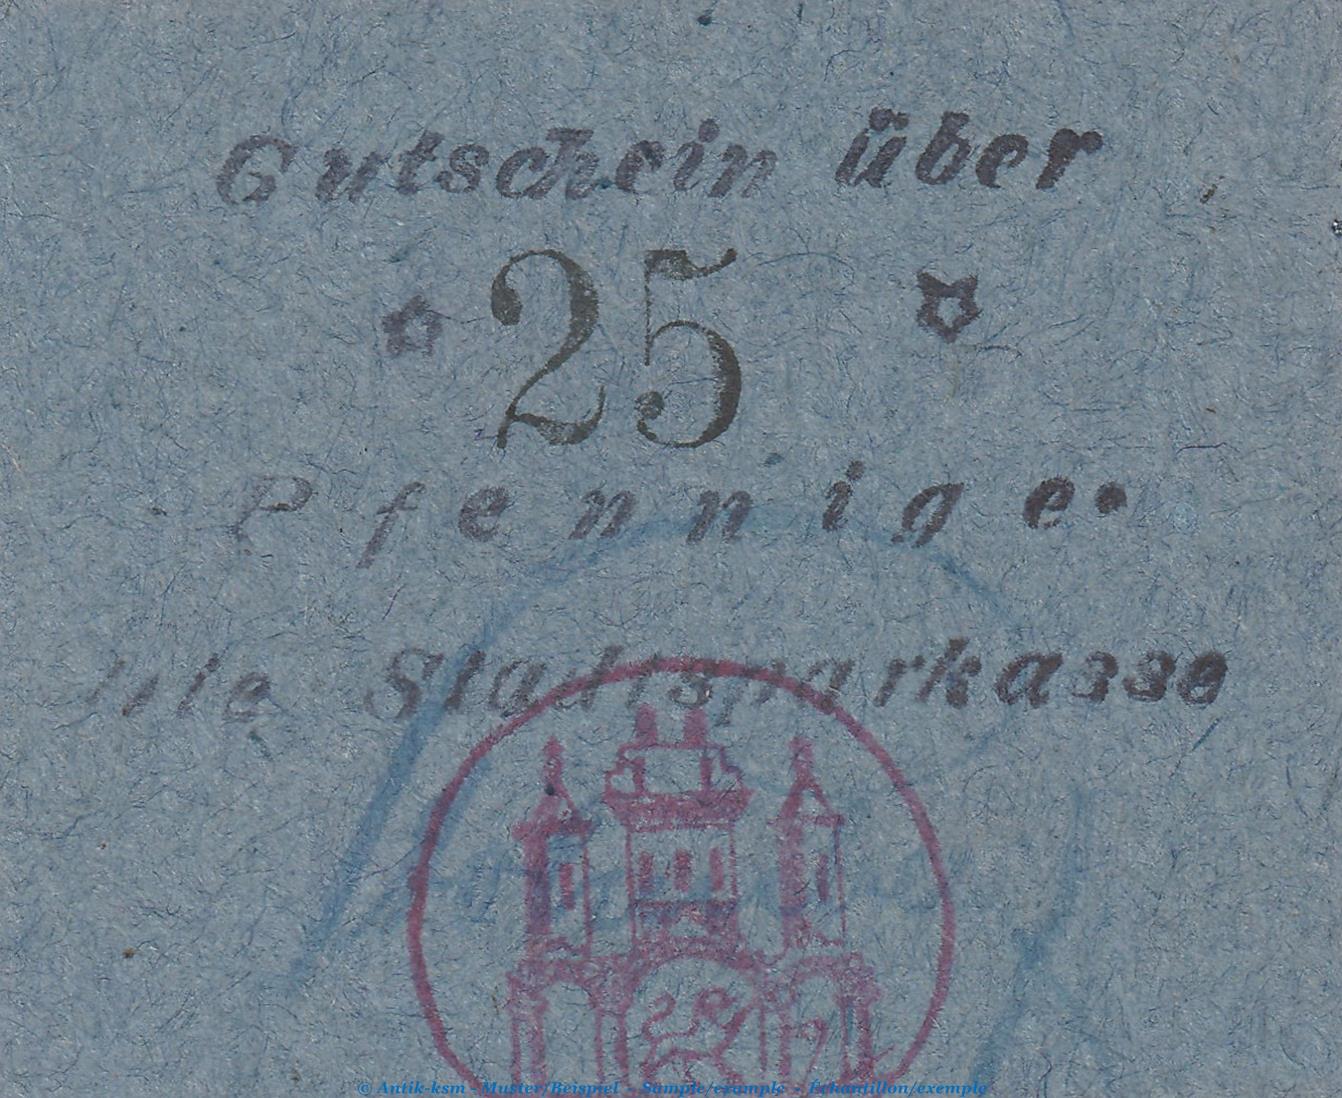 Gutschein über
25
Pfennige.
Die Stadtsparkasse
© Antik-ksm - Muster/Beispiel - Sample/example - Échantillon/exemple